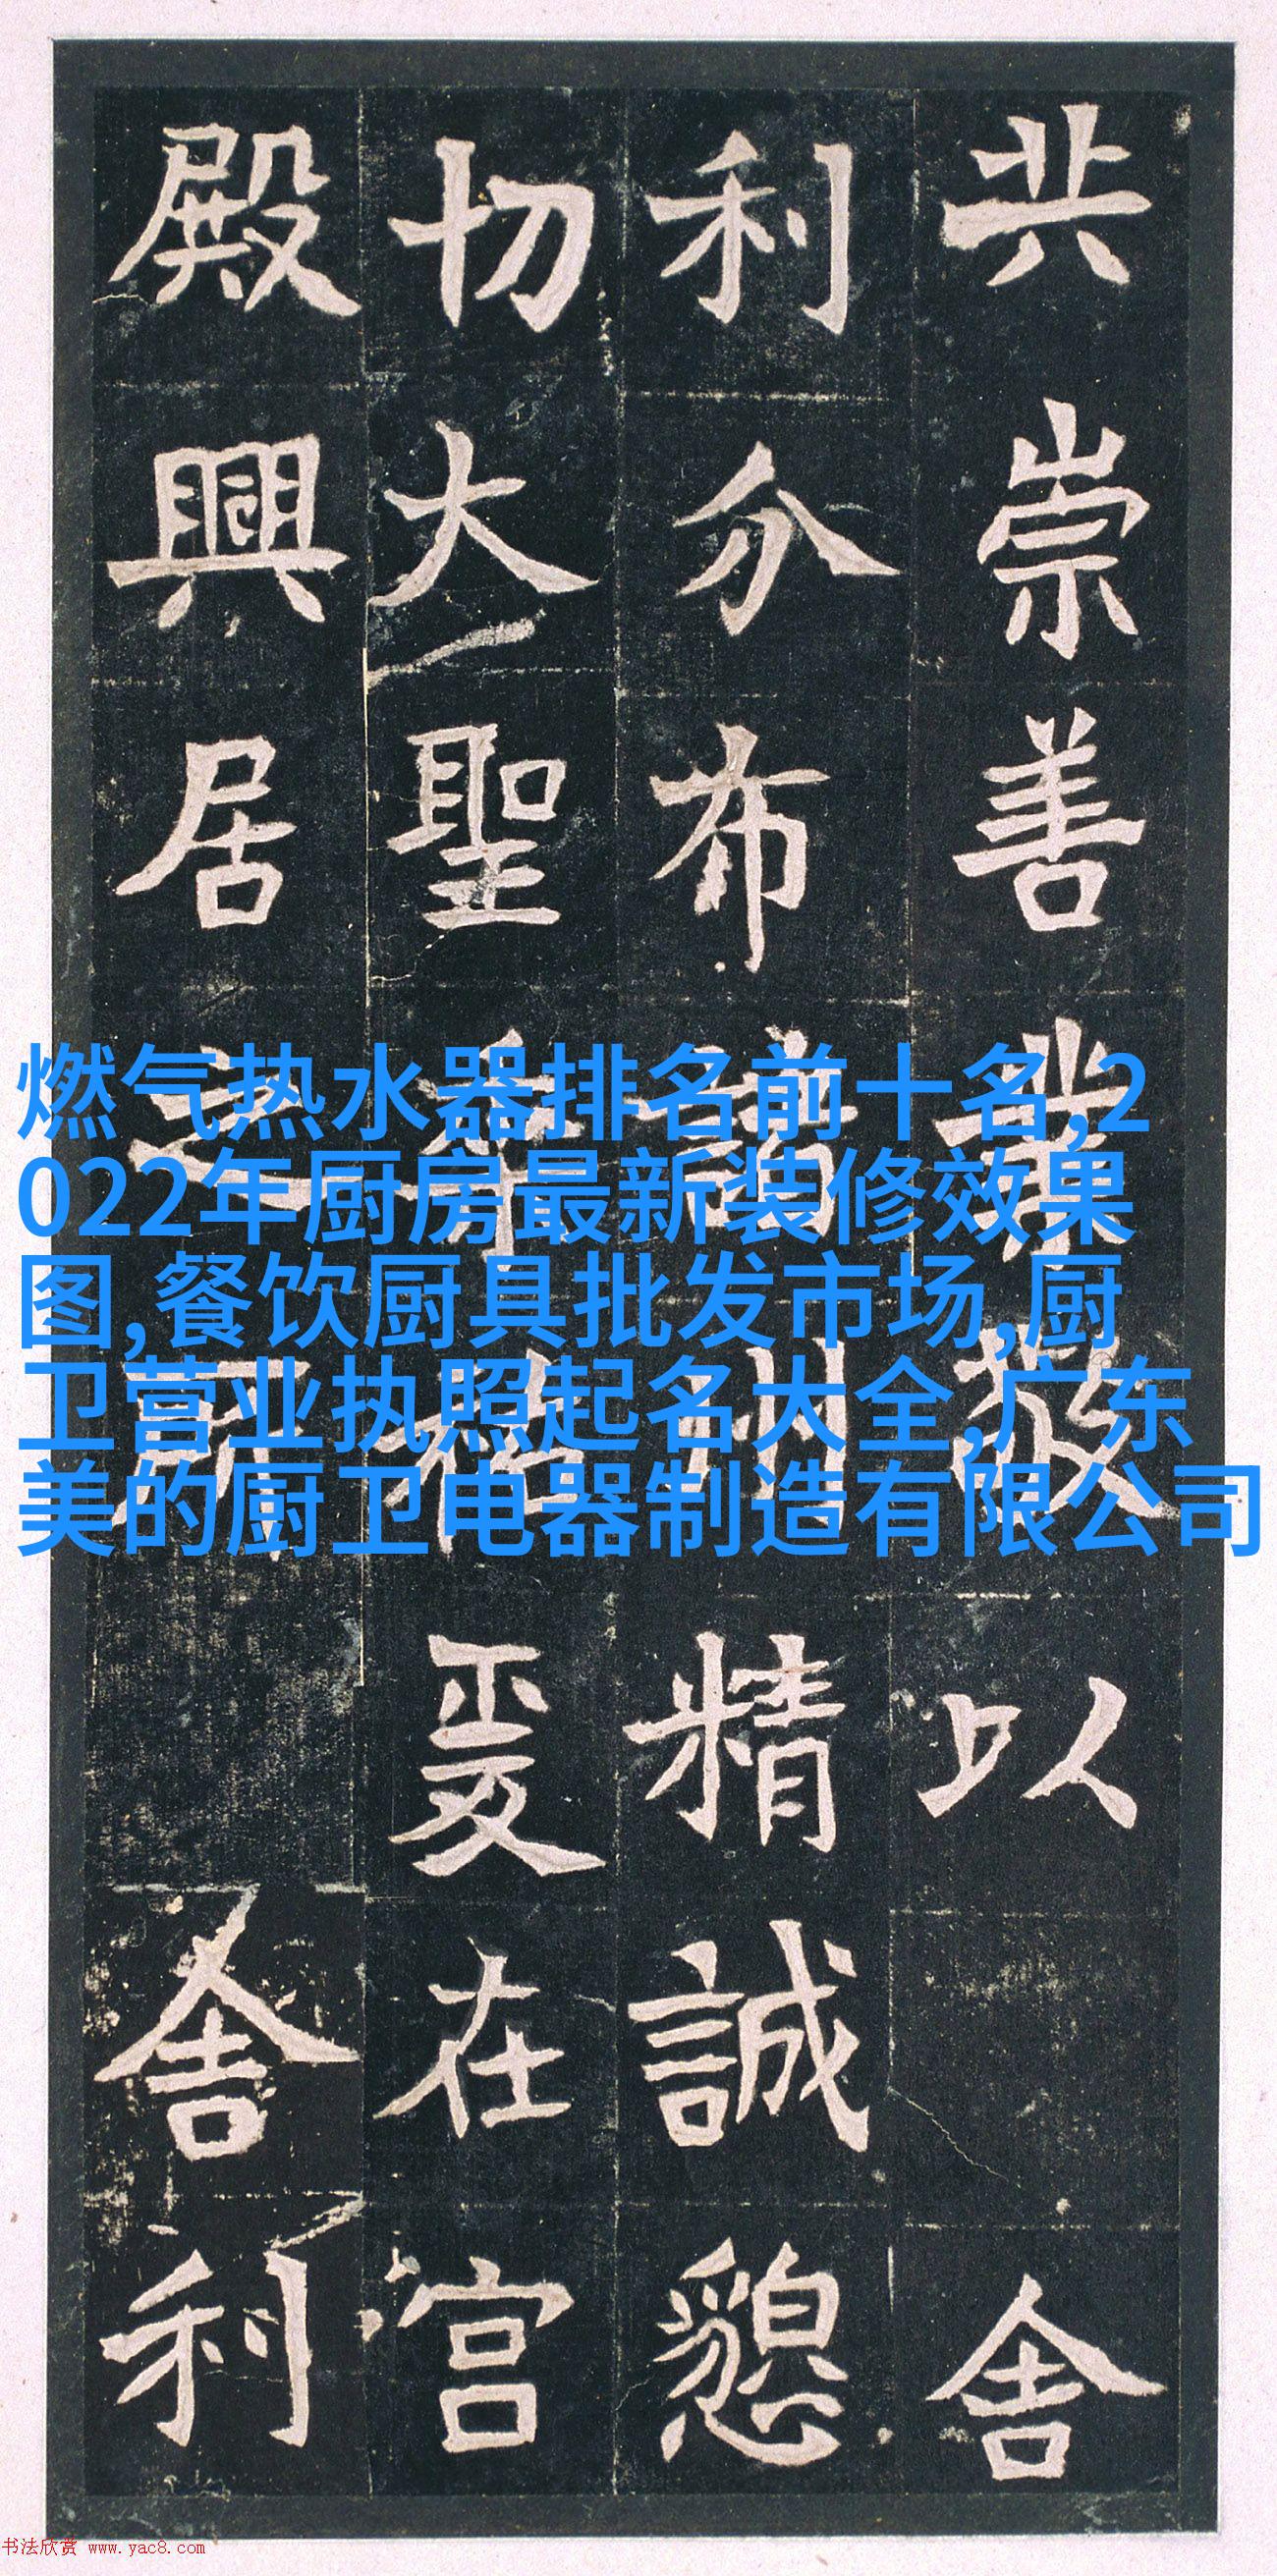 共崇善業敬以舍
利分布諸州精誠懇
切大聖垂祐爰在宮
殿興居之所舍利
燃气热水器排名前十名,2
022年厨房最新装修效果
图,餐饮厨具批发市场,厨
卫营业执照起名大全,广东
美的厨卫电器制造有限公司
书法欣赏 www.yac8.com